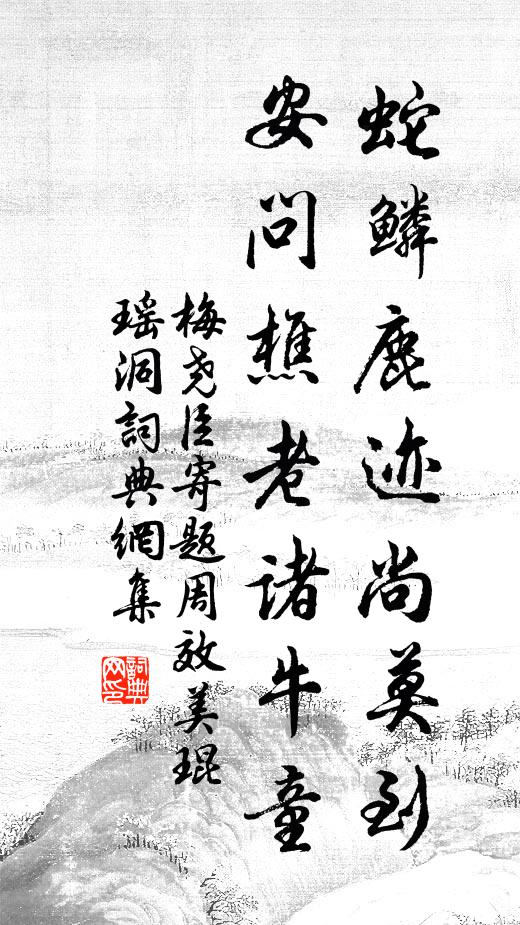 蛇鳞鹿迹尚莫到
安问樵老诸牛童
梅尧臣寄题周效美琨
瑶洞詞典網集
詞典
网印